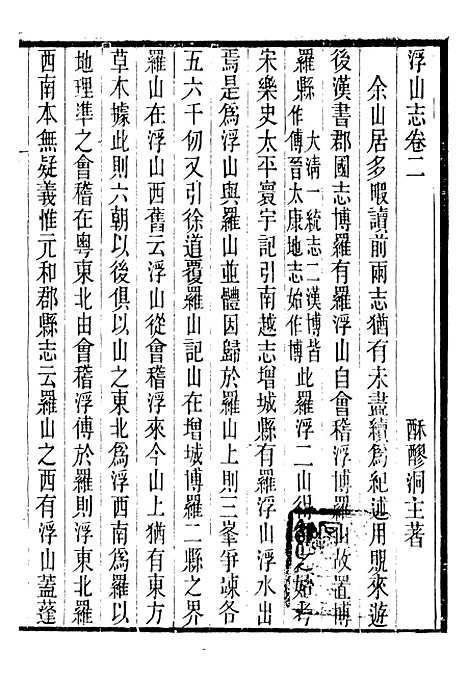 浮山志卷二
酥醪洞主著
余山居多暇讀前兩志猶有未盡續爲紀述用貺來遊
後漢書郡國志博羅有羅浮山自會稽浮博羅山故置博
羅縣大清一統志二漢博皆
作傅晉太康地志始作博此羅浮二山得之始考
宋樂史太平寰宇記引南越志增城縣有羅浮山浮水出
焉是爲浮山與羅山並體因歸於羅山上則三峯爭竦各
五六千仞又引徐道覆羅山記山在增城博羅二縣之界
羅山在浮山西舊云浮山從會稽浮來今山上猶有東方
草木據此則六朝以後俱以山之東北爲浮西南爲羅以
地理準之會稽在粵東北由會稽浮傅於羅則浮東北羅
西南本無疑義惟元和郡縣志云羅山之西有浮山蓋蓬